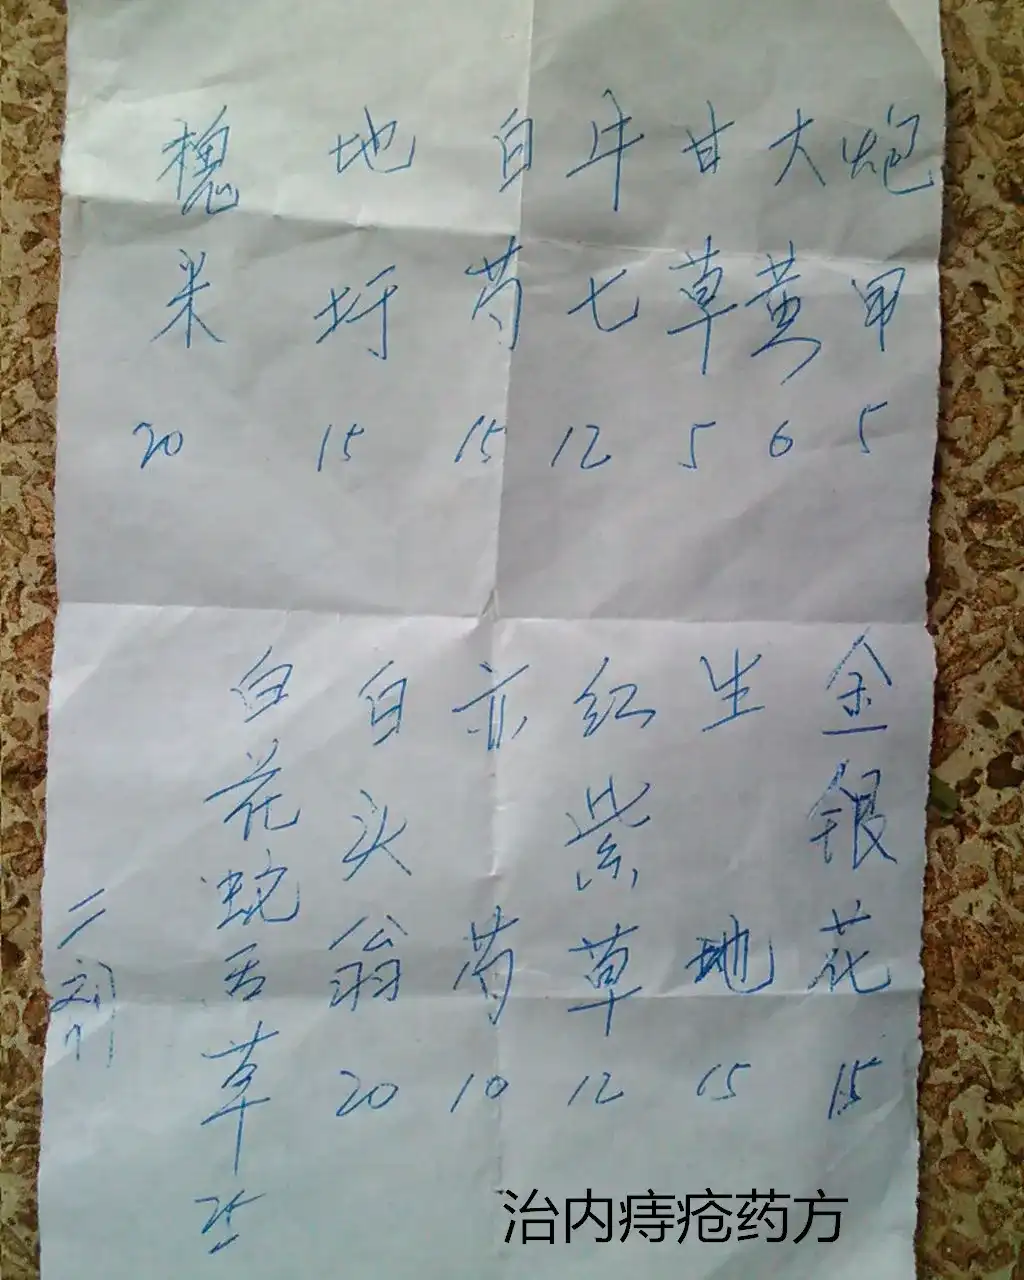 炮甲 5
大黄 6
甘草 5
牛七 12
白芍 15
地圩 15
槐米 20
金银花 15
生地 15
红紫草 12
亦芍 10
白头翁 20
白花蛇舌草 25
二剂
治内痔疮药方